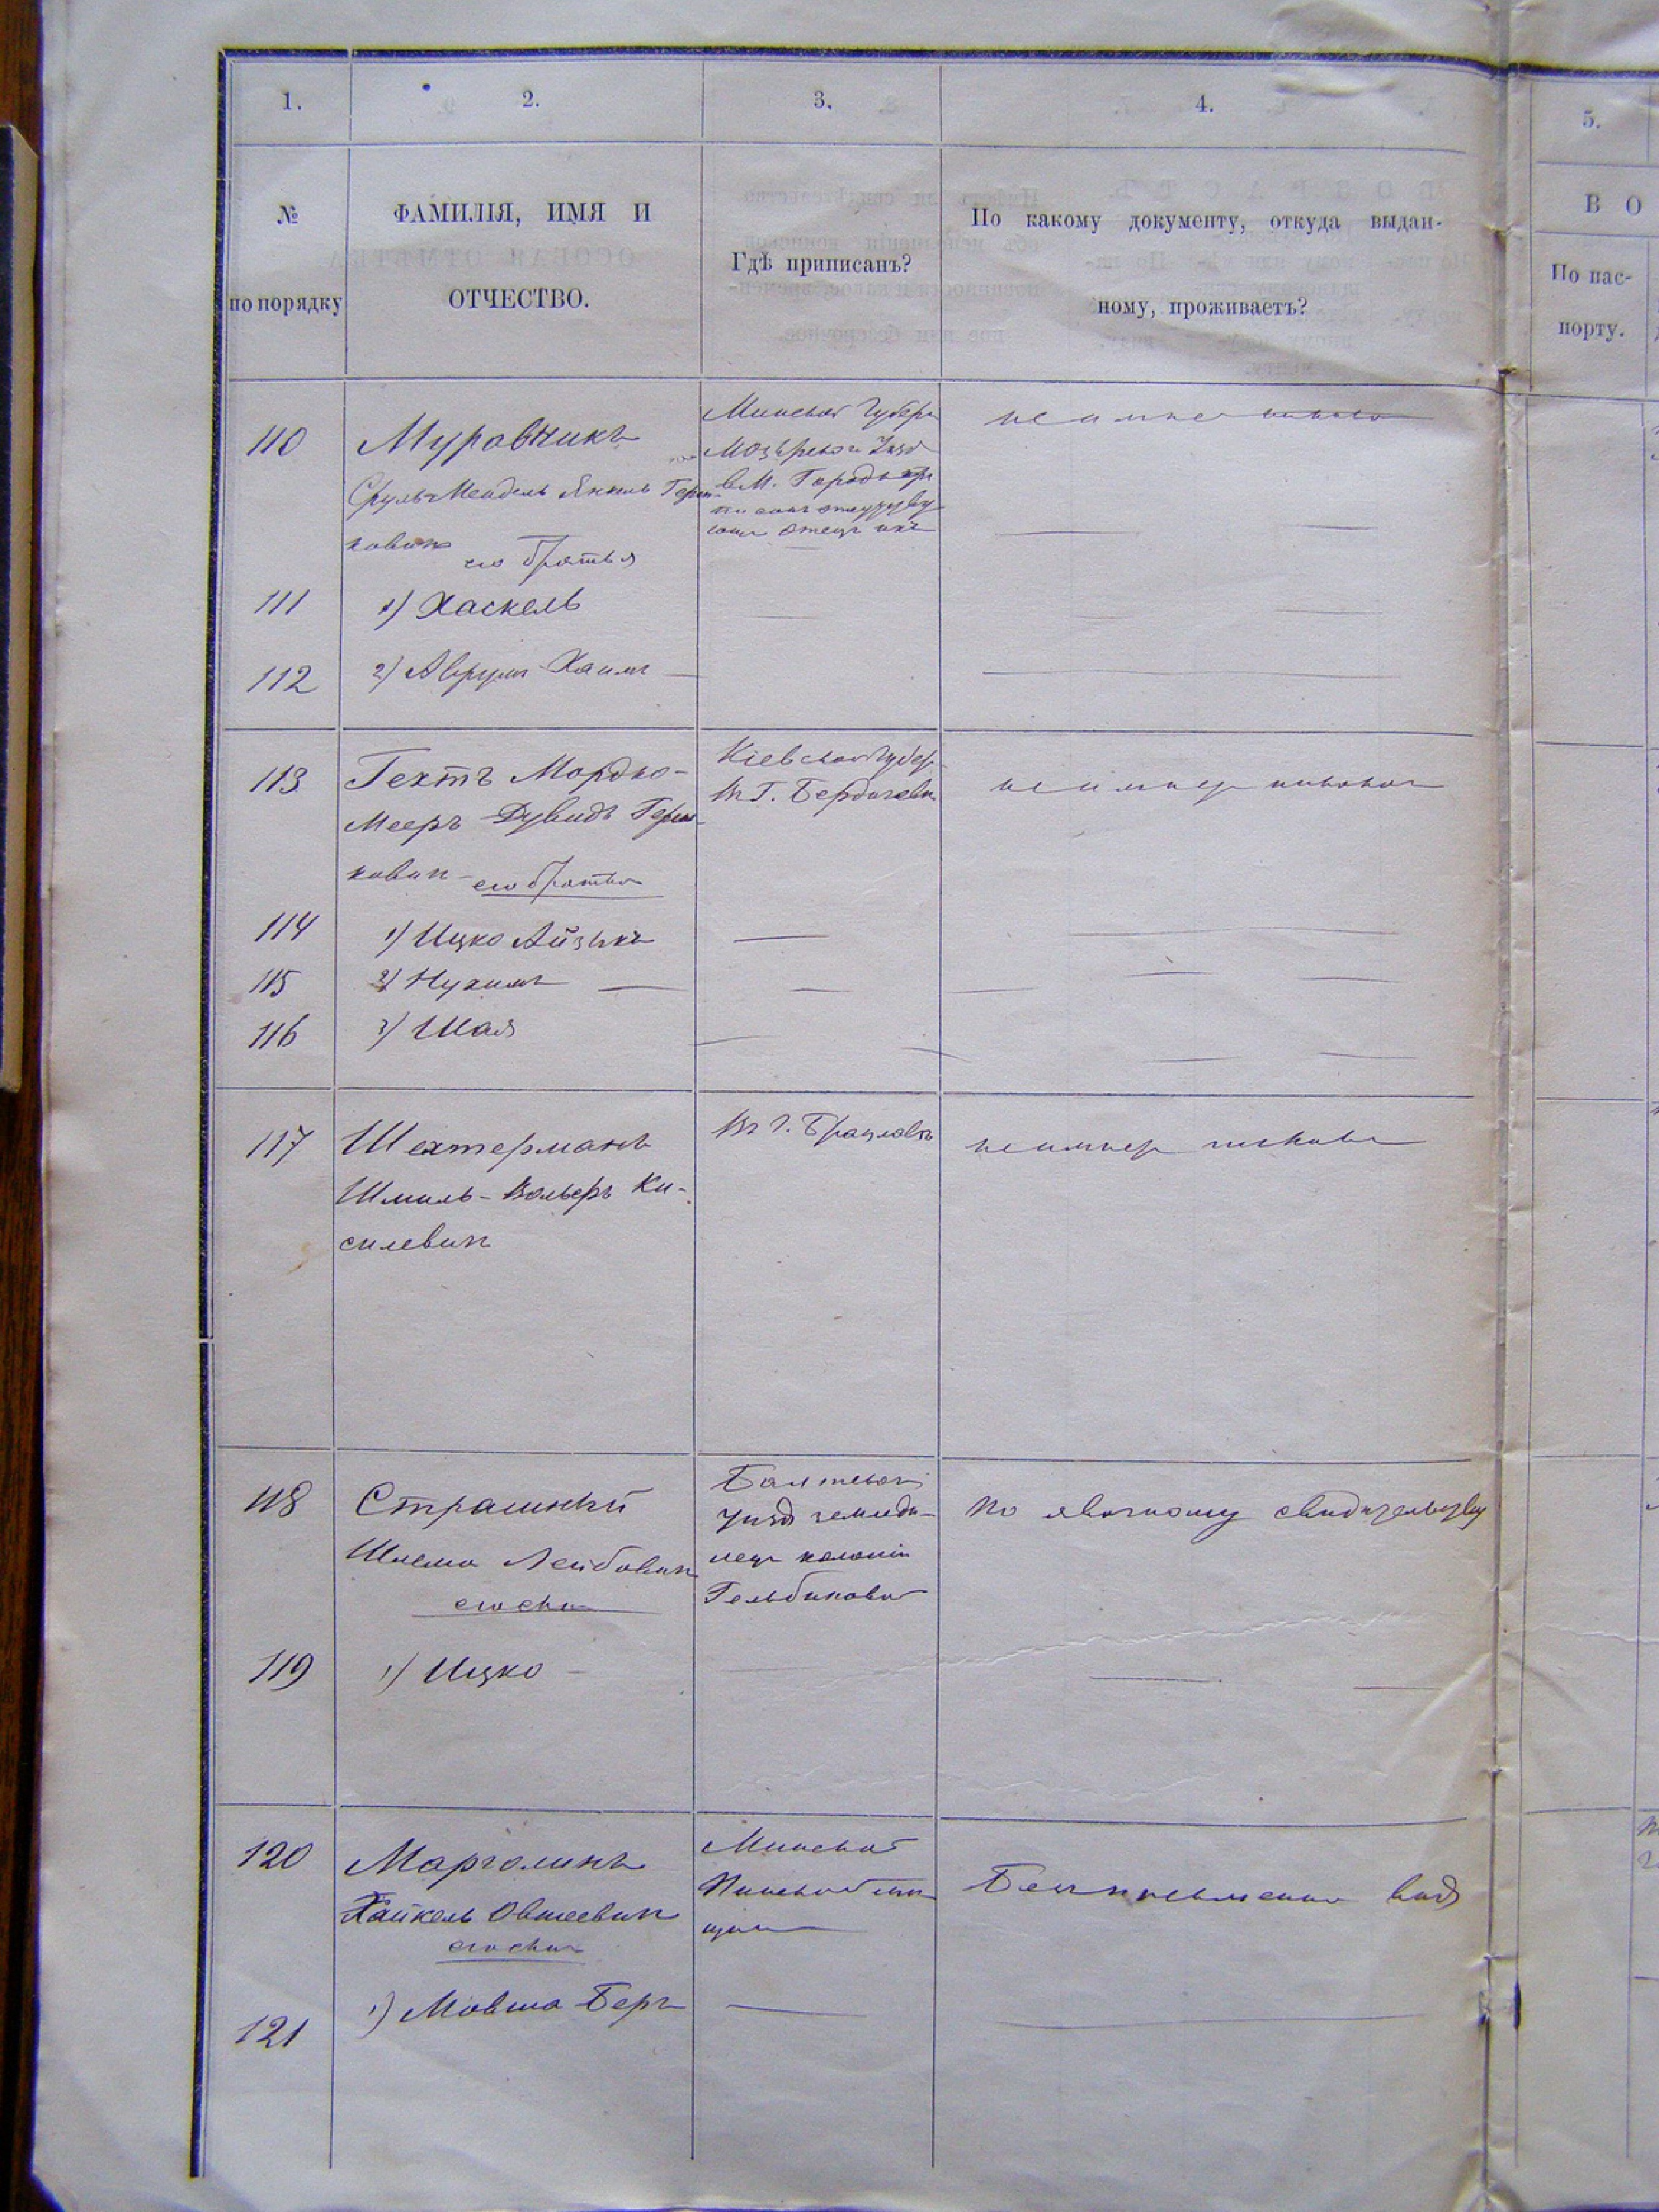 1.
2.
3.
4.
5.
№
по порядку
ФАМИЛІЯ, ИМЯ И
ОТЧЕСТВО.
Гдѣ приписанъ?
По какому документу, откуда выдан-
ному, проживаетъ?
В О
По пас-
порту.
110
Муравчикъ
Сруль-Мендель Янкель Герш-
ковичъ
его братья
Минской Губерн
Мозырскаго Уѣзд
в М.
отецъ ихъ
111
1) Хаскель
112
2) Аврумъ Хаимъ
113
Гехтъ Мордко-
Мееръ Дувидъ Герш-
ковичъ его братья
Кіевской Губер
въ Г. Бердичевѣ
114
1) Ицко Айзикъ
115
2) Нухимъ
116
3) Шая
117
Шехтерманъ
Шмиль-Вольфъ Ки-
силевичъ
въ г. Брацлавѣ
118
Страшный
Шлема Лейбовичъ
его сынъ
Балтской
уѣзд земледѣ-
лецъ колоніи
По явочному свидѣтельству
119
1) Ицко
120
Марголинъ
Хайкель Овшеевичъ
его сынъ
Минской
Пинской
видъ
121
1) Мовша Беръ